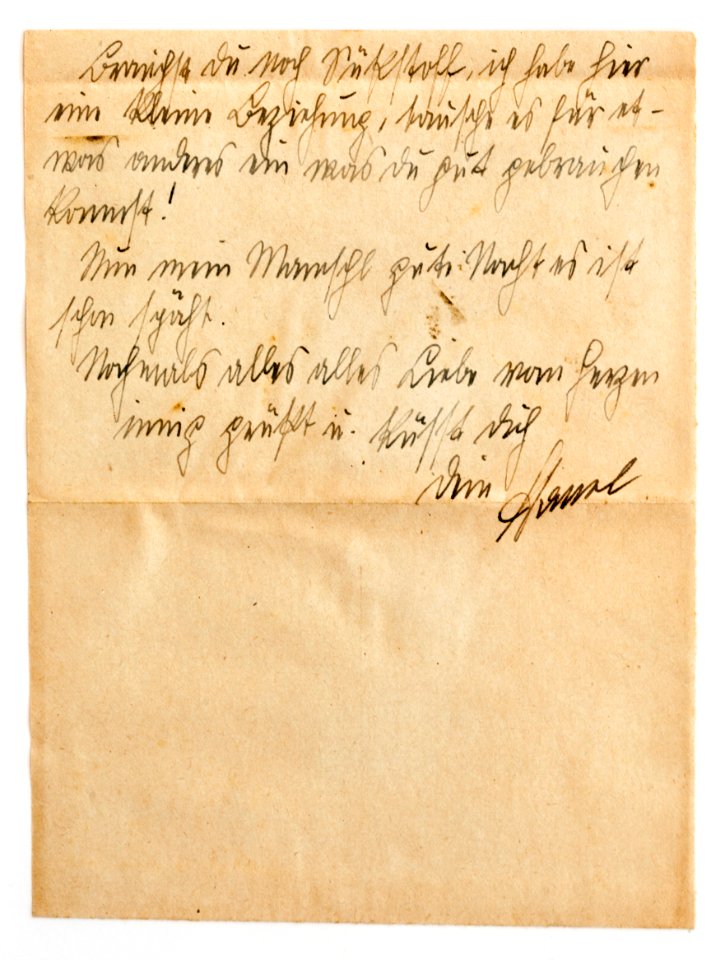 Brauchst du noch Süßstoff, ich habe hier
eine kleine Beziehung, tausche es für et-
was anderes ein was du gut gebrauchen
kannst!
Nun mein gute Nacht es ist
schon späht.
Nochmals alles alles Liebe vom Herzen
innig grüßt u. küsst dich
dein